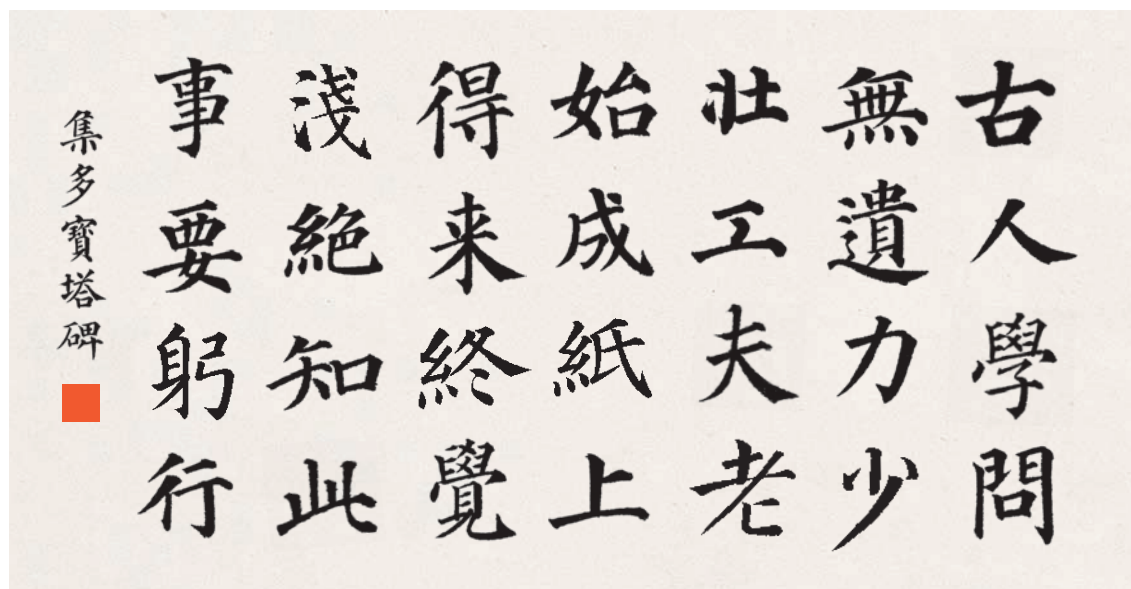 古人學問
無遺力少
壯工夫老
始成紙上
得来終覺
淺絕知此
事要躬行
集多寶塔碑